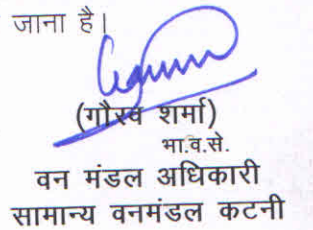 जाना है।
(गौरव शर्मा)
भा.व.से.
वन मंडल अधिकारी
सामान्य वनमंडल कटनी